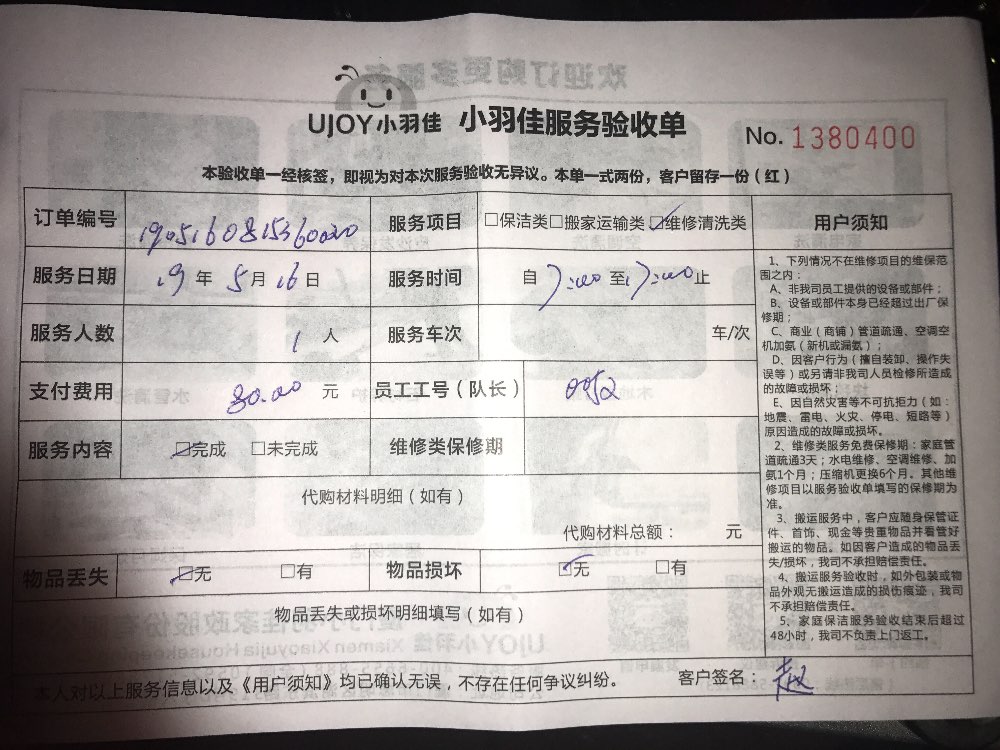 UJOY小羽佳 小羽佳服务验收单
No. 1380400
本验收单一经核签，即视为对本次服务验收无异议。本单一式两份，客户留存一份（红）
订单编号 1905160815360020 服务项目 □保洁类□搬家运输类☑维修清洗类
服务日期 19 年 5 月 16 日 服务时间 自 至 止
服务人数 1 人 服务车次 车/次
支付费用 80.00 元 员工工号（队长）
服务内容 ☑完成 □未完成 维修类保修期
代购材料明细（如有）
代购材料总额： 元
物品丢失 ☑无 □有 物品损坏 ☑无 □有
物品丢失或损坏明细填写（如有）
本人对以上服务信息以及《用户须知》均已确认无误，不存在任何争议纠纷。 客户签名：赵
用户须知
1、下列情况不在维修项目的维保范
围之内：
A、非我司员工提供的设备或部件；
B、设备或部件本身已经超过出厂保
修期；
C、商业（商铺）管道疏通、空调空
机加氨（新机或漏氨）；
D、因客户行为（擅自装卸、操作失
误等）或另请非我司人员检修所造成
的故障或损坏；
E、因自然灾害等不可抗拒力（如：
地震、雷电、火灾、停电、短路等）
原因造成的故障或损坏。
2、维修类服务免费保修期：家庭管
道疏通3天；水电维修、空调维修、加
氨1个月；压缩机更换6个月。其他维
修项目以服务验收单填写的保修期为
准。
3、搬运服务中，客户应随身保管证
件、首饰、现金等贵重物品并看管好
搬运的物品。如因客户造成的物品丢
失/损坏，我司不承担赔偿责任。
4、搬运服务验收时，如外包装或物
品外观无搬运造成的损伤痕迹，我司
不承担赔偿责任。
5、家庭保洁服务验收结束后超过
48小时，我司不负责上门返工。